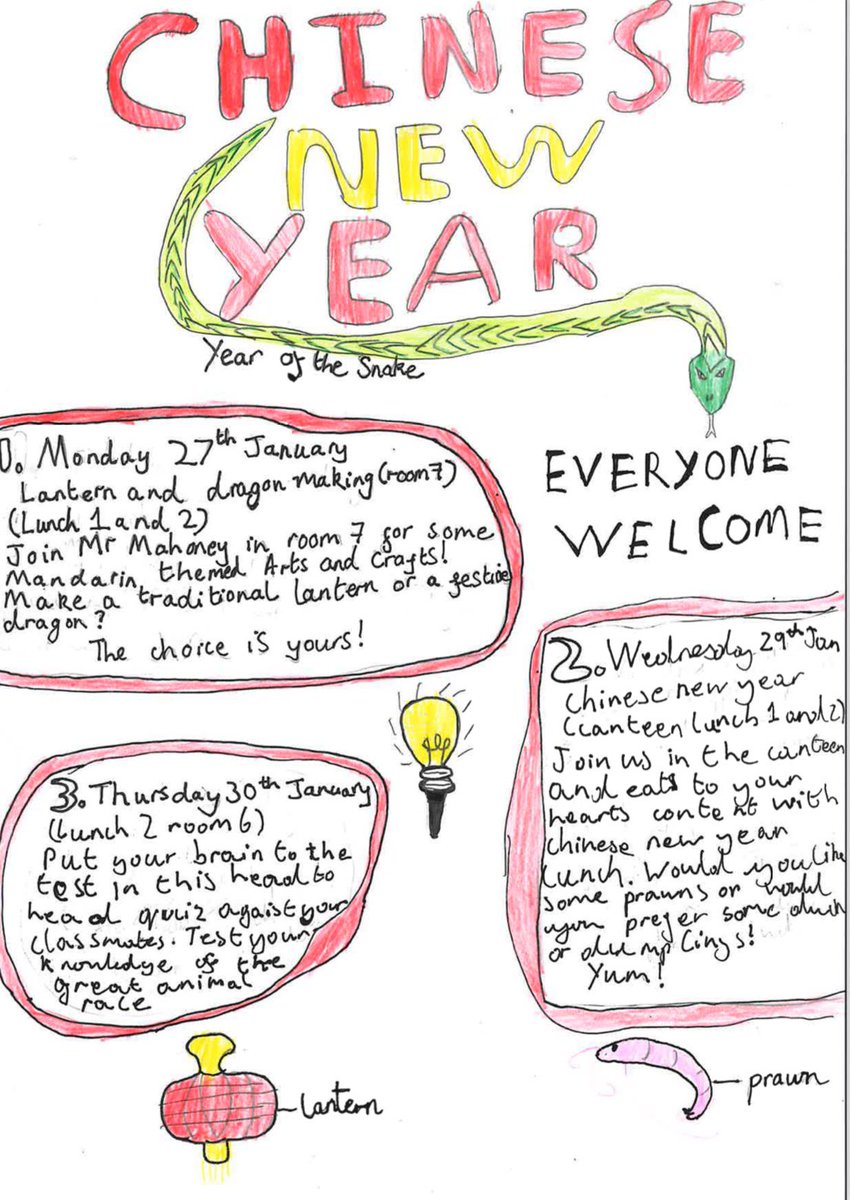 CHINESE
NEW
YEAR
Year of the Snake
EVERYONE
WELCOME
1. Monday 27th January
Lantern and dragon making (room 7)
(Lunch 1 and 2)
Join Mr Mahoney in room 7 for some
Mandarin themed Arts and Crafts!
Make a traditional lantern or a festive
dragon?
The choice is yours!
2. Wednesday 29th Jan
Chinese new year
(canteen lunch 1 and 2)
Join us in the canteen
and eat to your
hearts content with
chinese new year
lunch. Would you like
some prawns or would
you prefer some
or dumplings!
Yum!
3. Thursday 30th January
(Lunch 2 room 6)
Put your brain to the
test in this head to
head quiz agaist your
classmates. Test your
knowledge of the
great animal
race
lantern
prawn